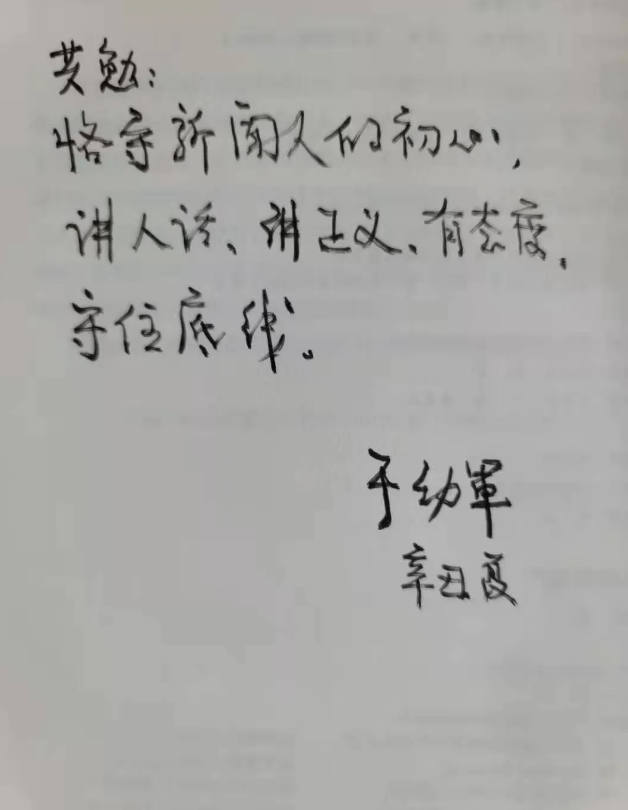 共勉：
恪守新闻人的初心，
讲人话、讲正义、有态度，
守住底线。
于幼軍
辛丑夏